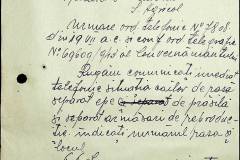 Agricol
Urmare ord. telefonic Nº 7808
din 19 VII a.c. și conf. ord. telegrafic
Nº 69600/943 al Guvernământului
Rugăm comunicați imediat
telefonic situația oilor de rasă
separat epe de prăsilă
și separat armăsari de reproduc-
ție indicați numărul rasa și
locul